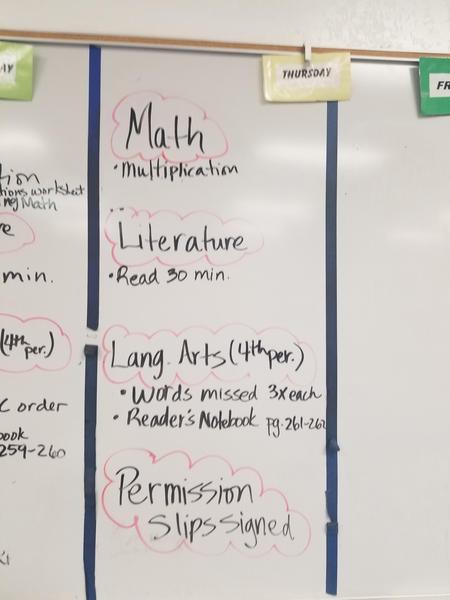 AY
THURSDAY
FR
Math
• Multiplication
Literature
• Read 30 min.
Lang. Arts (4th per.)
• Words missed 3x each
• Reader's Notebook pg. 261-262
Permission
Slips signed
tion
tions worksheet
ng Math
re
min.
(4th per.)
C order
book
259-260